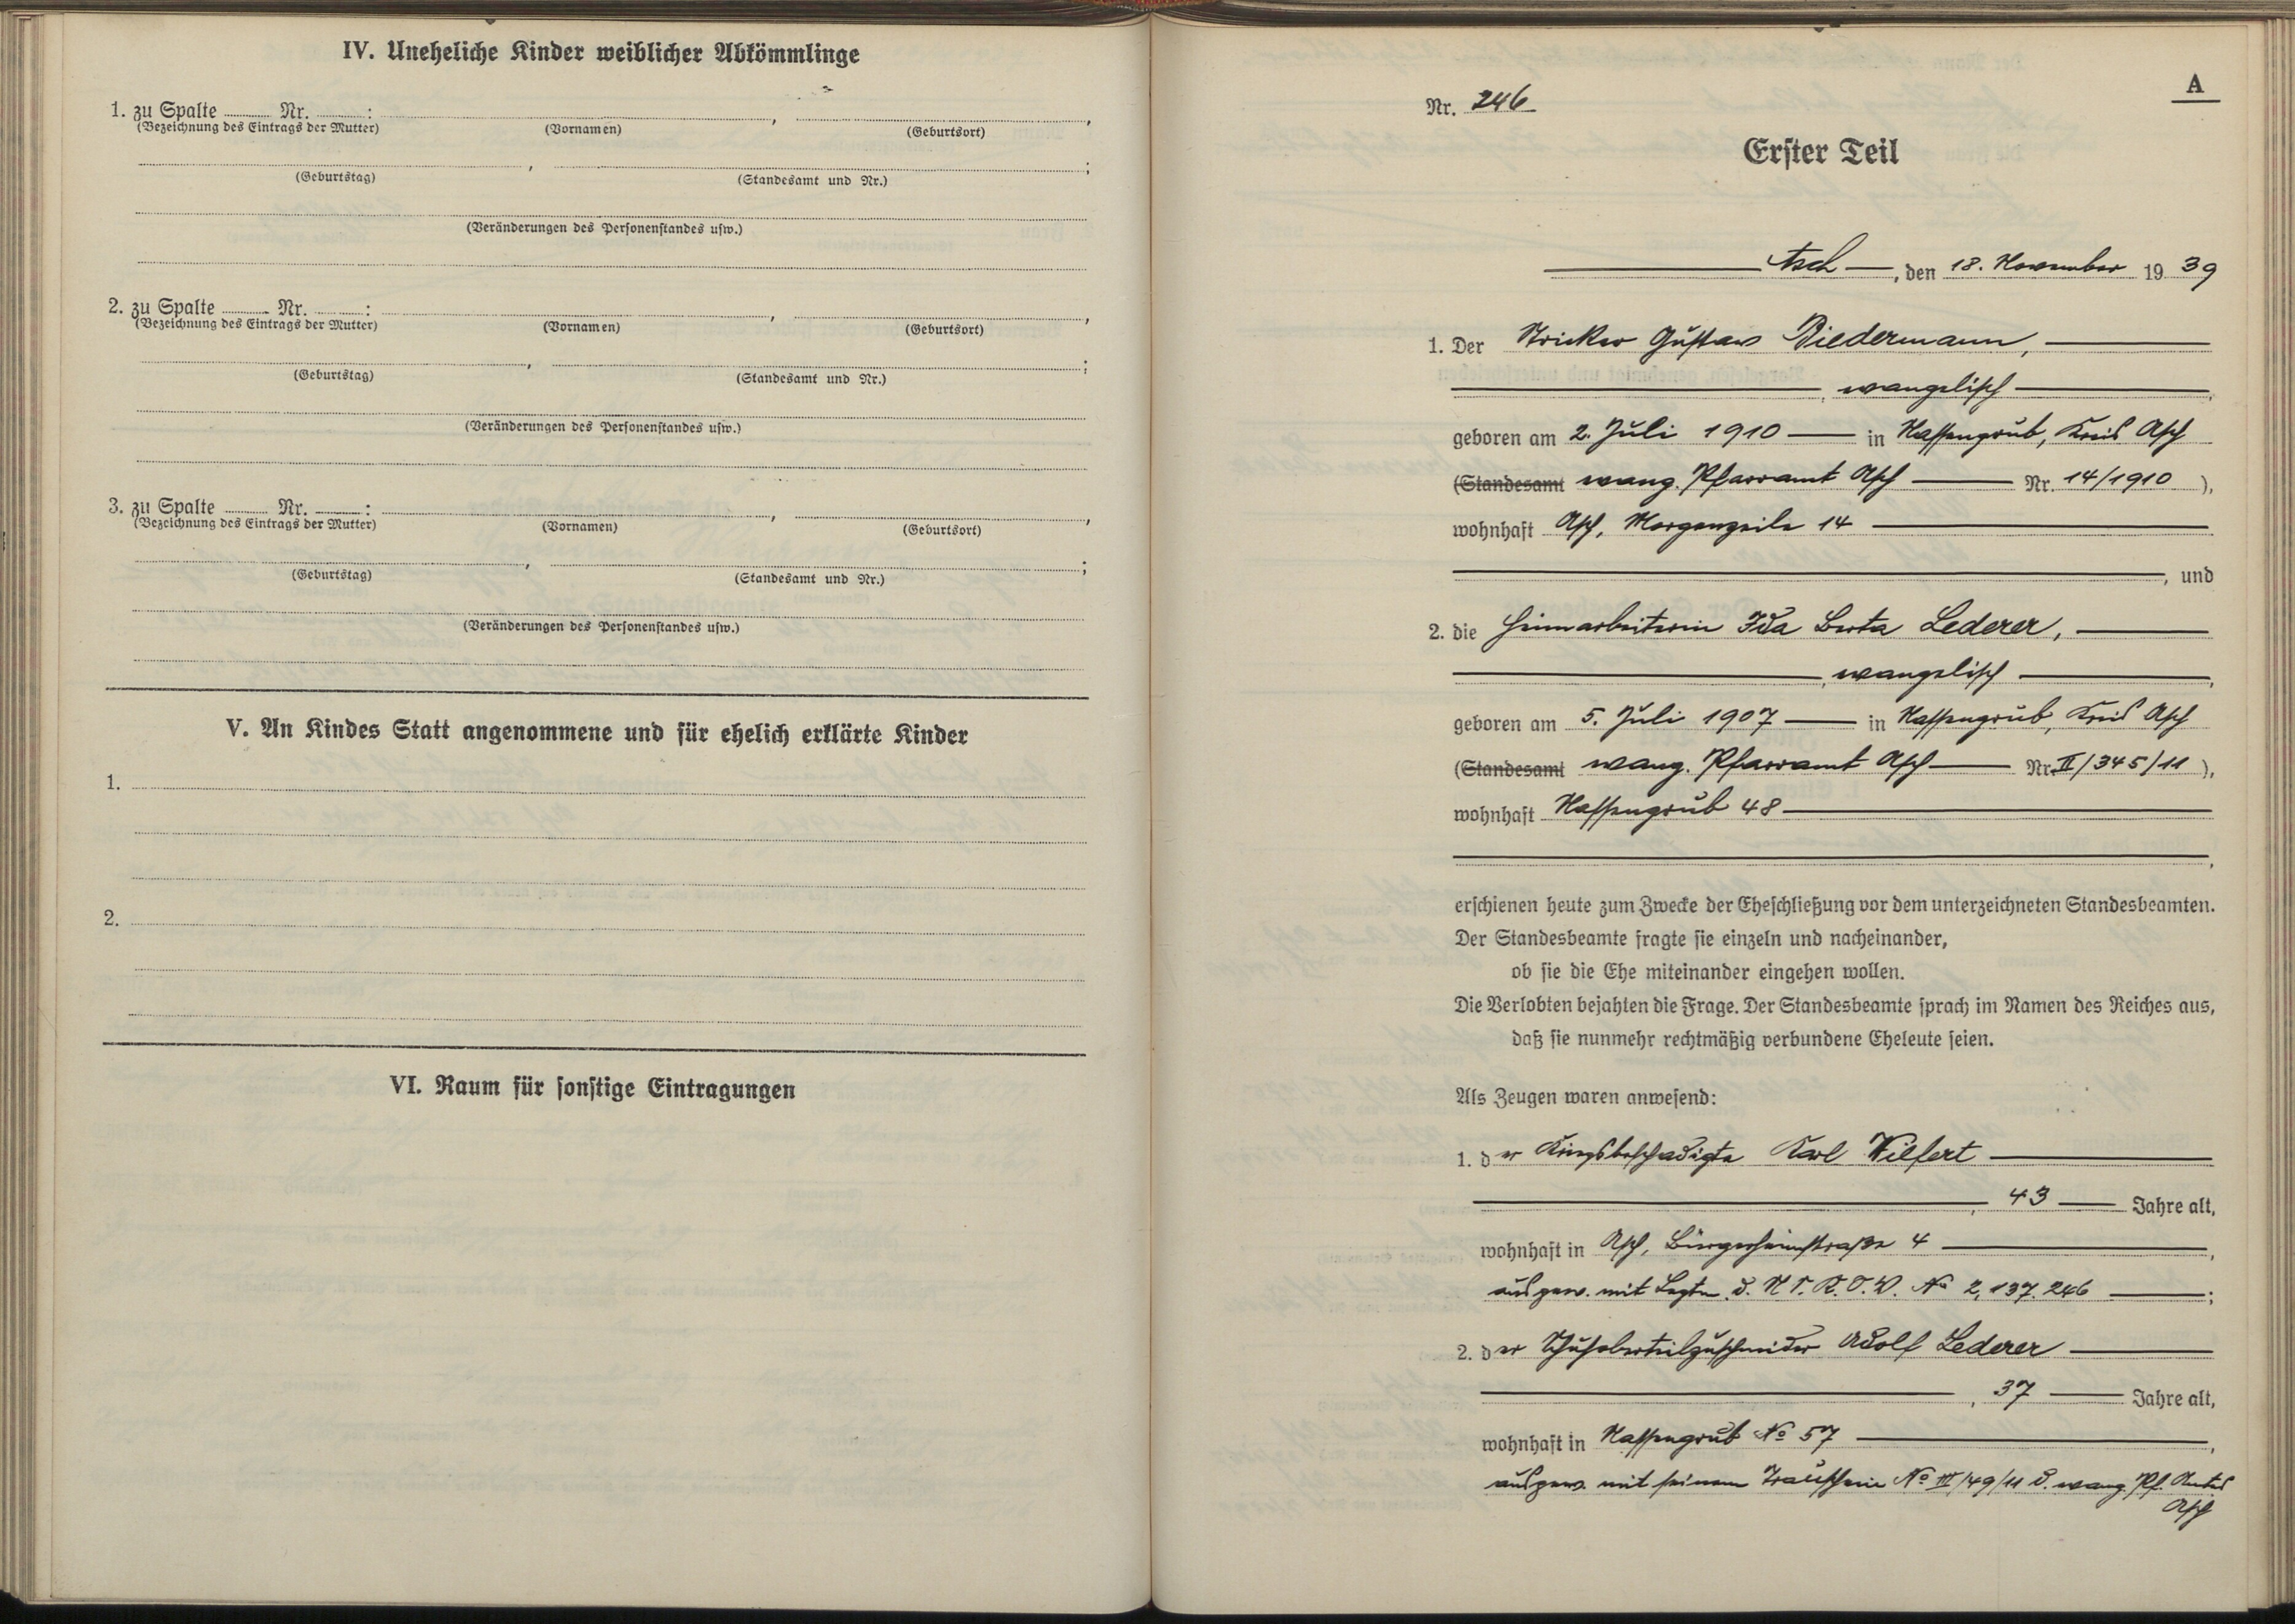 IV. Uneheliche Kinder weiblicher Abkömmlinge
1. zu Spalte ........ Nr. ........ : ........ , ........ ,
(Bezeichnung des Eintrags der Mutter) (Vornamen) (Geburtsort)
........ , ........ ;
(Geburtstag) (Standesamt und Nr.)
(Veränderungen des Personenstandes usw.)
2. zu Spalte ........ Nr. ........ : ........ , ........ ,
(Bezeichnung des Eintrags der Mutter) (Vornamen) (Geburtsort)
........ , ........ ;
(Geburtstag) (Standesamt und Nr.)
(Veränderungen des Personenstandes usw.)
3. zu Spalte ........ Nr. ........ : ........ , ........ ,
(Bezeichnung des Eintrags der Mutter) (Vornamen) (Geburtsort)
........ , ........ ;
(Geburtstag) (Standesamt und Nr.)
(Veränderungen des Personenstandes usw.)
V. An Kindes Statt angenommene und für ehelich erklärte Kinder
1.
2.
VI. Raum für sonstige Eintragungen
A
Nr. 246
Erster Teil
Asch, den 18. November 1939
1. Der Stricker Gustav Biedermann,
, evangelisch ,
geboren am 2. Juli 1910 in Nassengrub, Kreis Asch
(Standesamt evang. Pfarramt Asch Nr. 14/1910 ),
wohnhaft Asch, Morgenzeile 14
, und
2. die Heimarbeiterin Ida Berta Lederer,
, evangelisch ,
geboren am 5. Juli 1907 in Nassengrub, Kreis Asch
(Standesamt evang. Pfarramt Asch Nr. II/345/11 ),
wohnhaft Nassengrub 48
,
erschienen heute zum Zwecke der Eheschließung vor dem unterzeichneten Standesbeamten.
Der Standesbeamte fragte sie einzeln und nacheinander,
ob sie die Ehe miteinander eingehen wollen.
Die Verlobten bejahten die Frage. Der Standesbeamte sprach im Namen des Reiches aus,
daß sie nunmehr rechtmäßig verbundene Eheleute seien.
Als Zeugen waren anwesend:
1. der Kriegsbeschädigte Karl Wilfert
, 43 Jahre alt,
wohnhaft in Asch, Bürgerheimstraße 4 ,
ausgew. mit Legtn. d. N.S.K.O.V. No 2,137.246 ;
2. der Schuhoberteilzuschneider Adolf Lederer
, 37 Jahre alt,
wohnhaft in Nassengrub No 57 ,
ausgew. mit seinem Trauschein No III/49/11 d. evang. Pf. Amtes
Asch